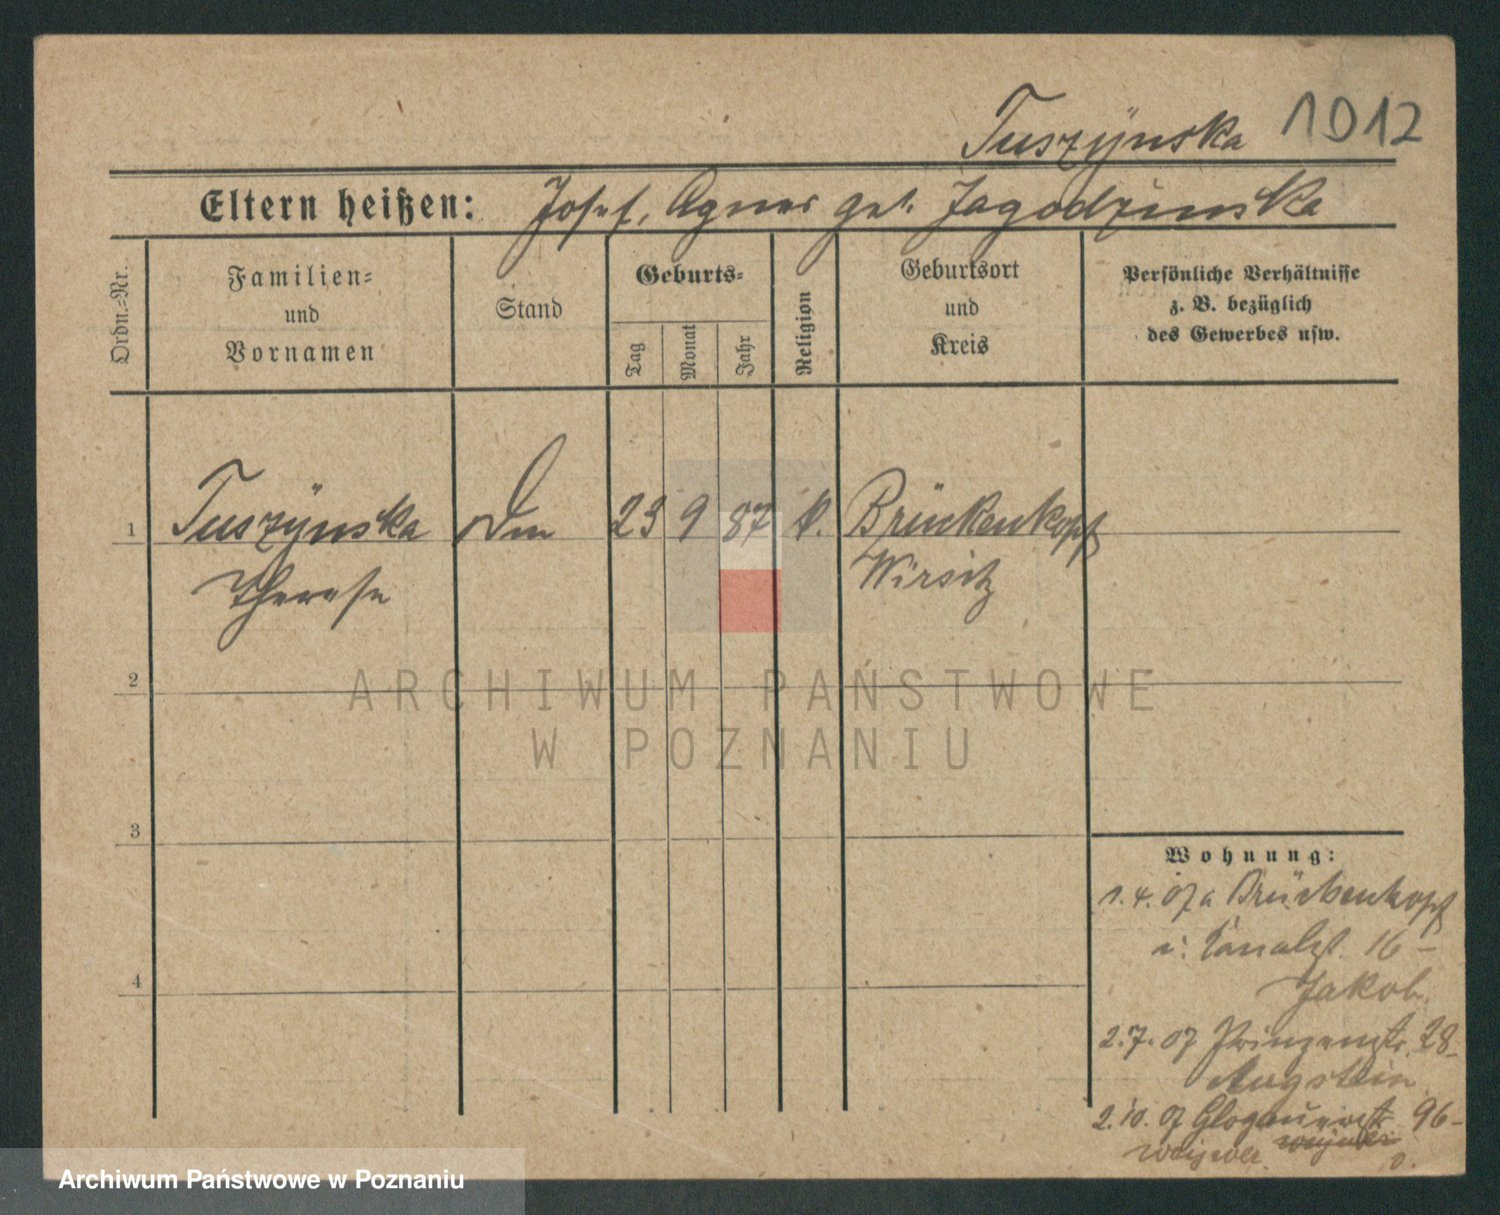 Tuszÿnska 1012
Eltern heißen: Josef, Agnes geb. Jagodzinska
Ordn.-Nr.
Familien-
und
Vornamen
Stand
Geburts-
Tag
Monat
Jahr
Religion
Geburtsort
und
Kreis
Persönliche Verhältnisse
z. B. bezüglich
des Gewerbes usw.
1 Tuszÿnska 23 9 87 k. Brückenkopf
Therese Wirsitz
2
3
4
ARCHIWUM PAŃSTWOWE
W POZNANIU
Wohnung:
1. 4. 07 a Brückenkopf
16 –
Jakob.
2. 7. 07 Prinzenstr. 28 –
Augstein
2. 10. 07 Glogauerstr. 96 –
Archiwum Państwowe w Poznaniu